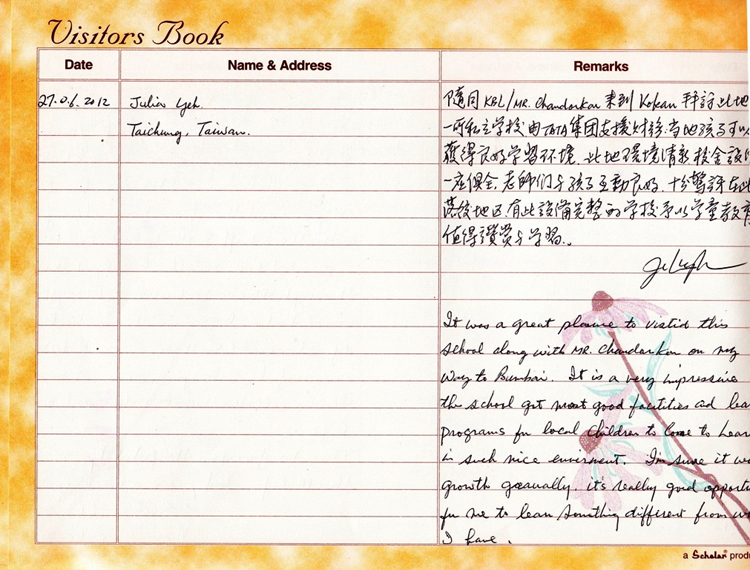 Visitors Book
Date Name & Address Remarks
27.06.2012 Julia Yeh.
Taichung, Taiwan.
隨同 KBL/MR. Chandorkar 來到 Kokan 拜訪此地
一所私立学校由TATA集团支援财務.当地孩子可以
獲得良好学習环境.此地環境清新校舍設
一应俱全.老師们与孩子互動良好.十分驚訝在此
落後地区.有此設備完整的学校予以学童教育
值得讚賞与学習.
It was a great pleasure to vistid this
school along with MR. Chandorkar on my
way to Bumbai. It is a very impressive
the school get most good facilities ad lear
programs for local children to come to lear
in such nice enviroment. I'm sure it wi
growth graeually. it's really good opportu
for me to lean somthing different from w
I have.
a Scholar produ